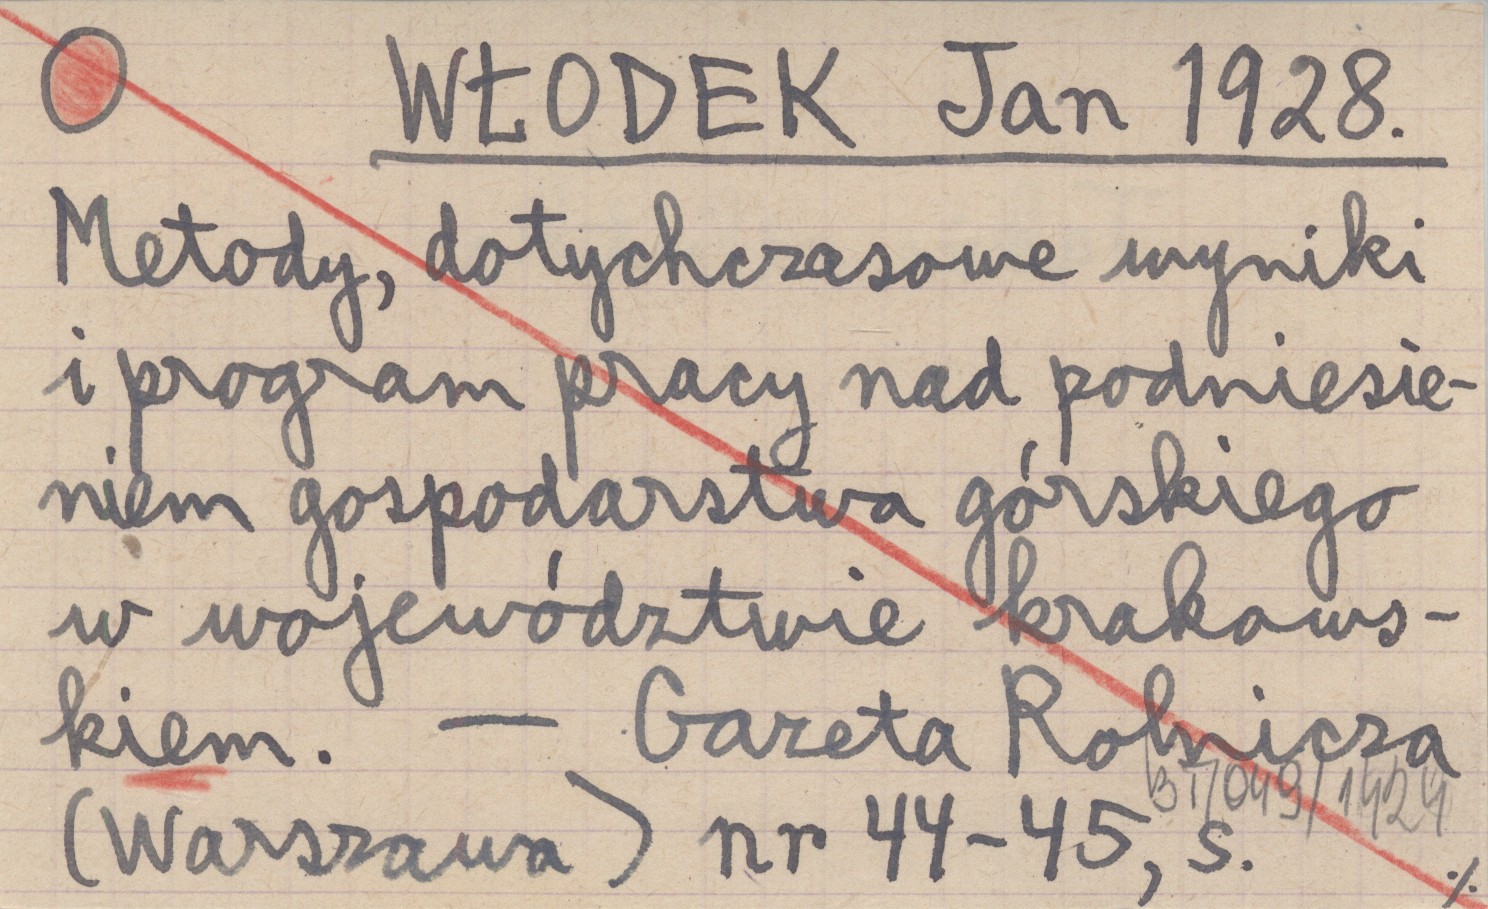 WŁODEK Jan 1928.
Metody, dotychczasowe wyniki
i program pracy nad podniesie-
niem gospodarstwa górskiego
w województwie krakows-
kiem. — Gazeta Rolnicza
BT/049/1424
(Warszawa) nr 44-45, s.
./.